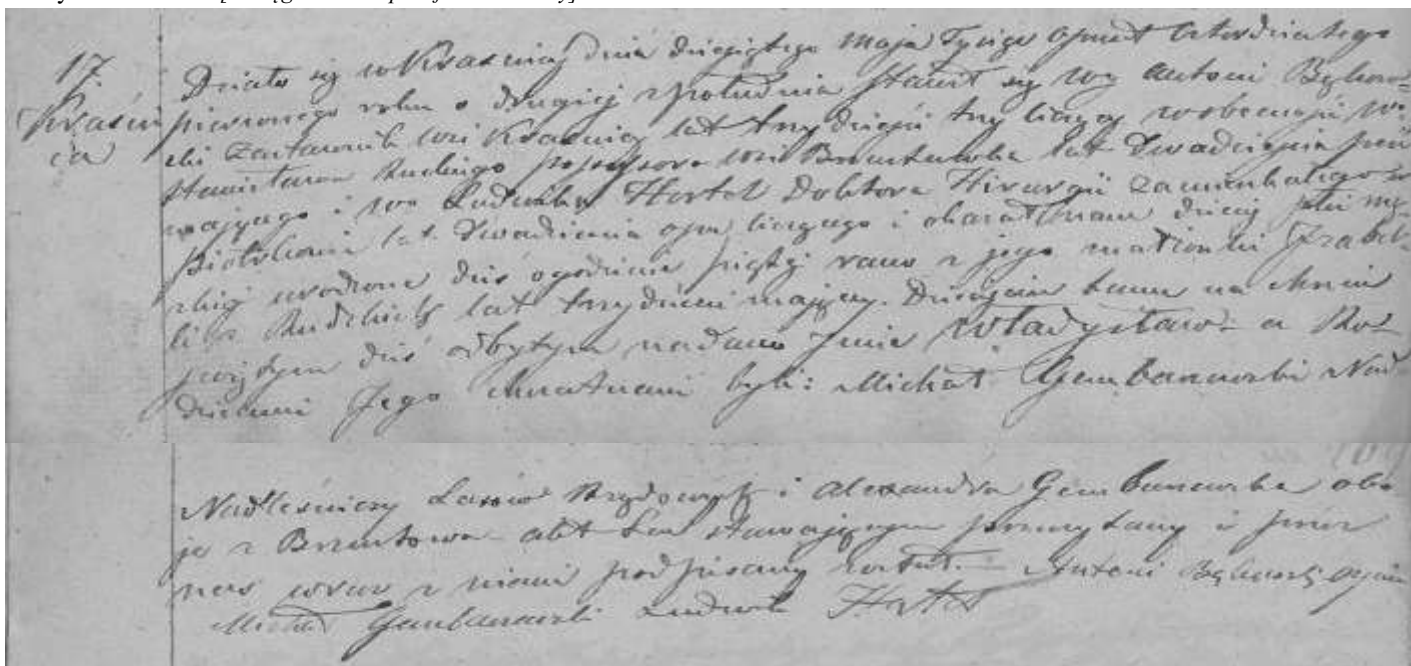 17. Działo się w Krasnicy dnia dziesiątego Maja Tysiąc ośmset czterdziestego
Kraśni pierwszego roku o drugiej z południa stawił się Wy Antoni Bąkow=
ca ski Zastawnik wsi Krasnicy lat trzydzieści trzy liczący w obecności W.
Stanisława Possessora wsi lat Dwadzieścia
mającego i Wo Ludwika Hertel Doktora Hirurgii zamieszkałego w
Piotrkowie lat Dwadzieścia ośm liczącego i okazał nam dziecię płci mę=
zkiej urodzone dziś o godzinie piątej rano z jego małżonki Izabel=
li z Rudzkich lat trzydzieści mającej. Dziecięciu temu na Chrzcie
świętym dziś odbytym nadane Imie Władysław a Ro=
dzicami Jego chrzestnemi byli: Michał Gembarzewski Nad=
Nadleśniczy Lasów Rządowych i Alexandra Gembarzewska obo
je z akt ten stawającym przeczytany i przez
nas wraz z niemi podpisany został. — Antoni Bąkowski ojciec
Michał Gembarzewski Ludwik Hertel